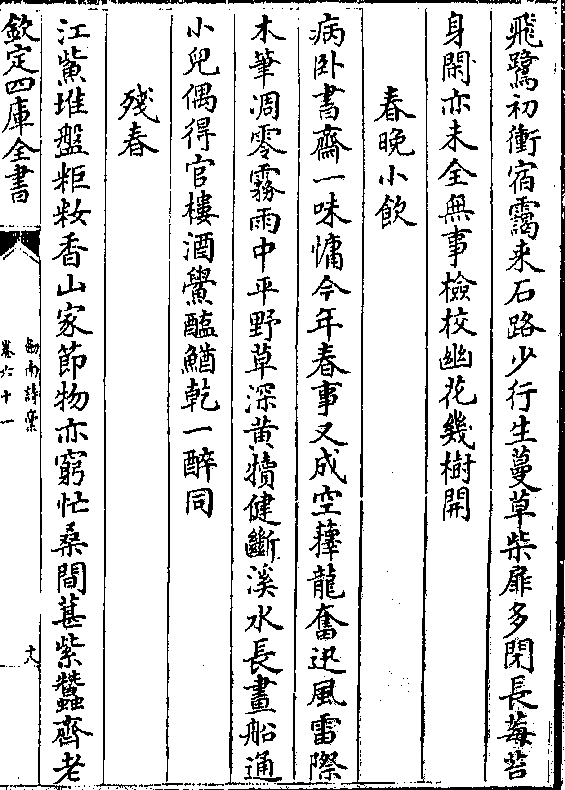 飛鷺初衝宿靄来石路少行生蔓草柴扉多閉長莓苔
身閒亦未全無事檢校幽花幾樹開
春晚小飲
病卧書齋一味慵今年春事又成空籜龍奮迅風雷際
木筆凋零霧雨中平野草深黄犢健斷溪水長畫船通
小兒偶得官樓酒鱟醢鰌乾一醉同
殘春
江鮆堆盤粔籹香山家節物亦窮忙桑間葚紫蠶齊老
欽定四庫全書
劍南詩稾
卷六十一